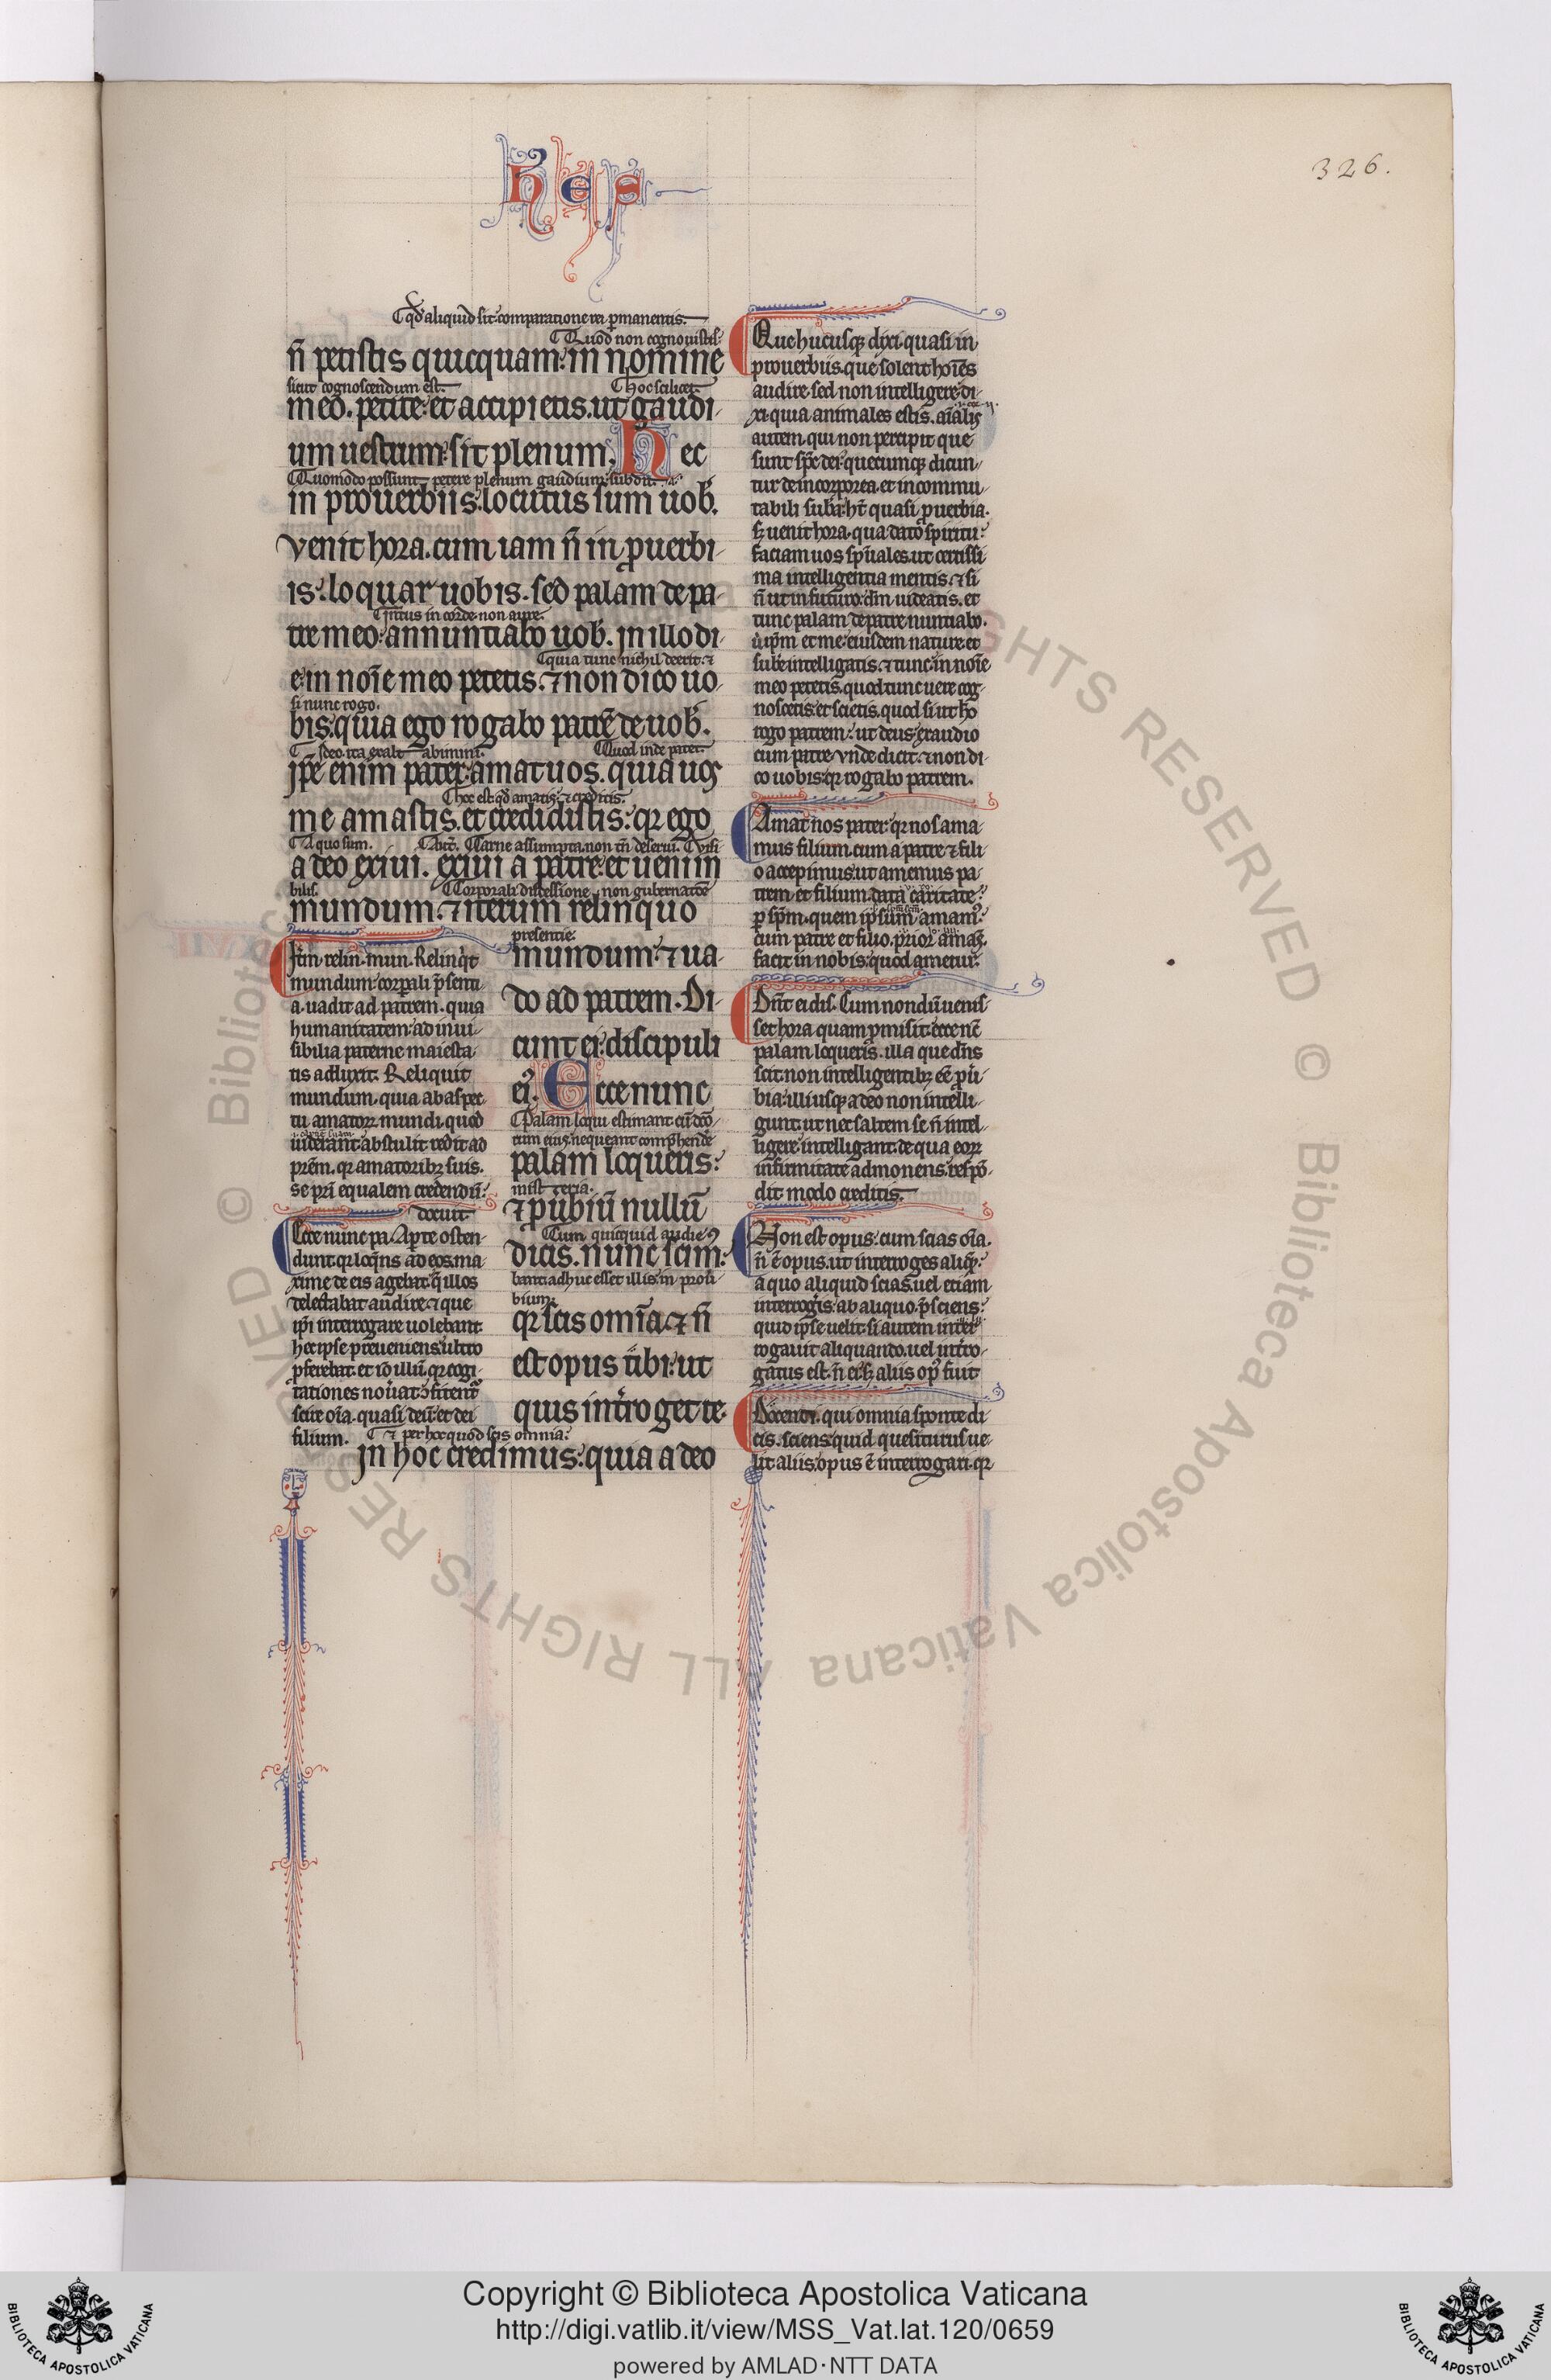 hes
326.
qd' aliquid sit comparatione rei permanentis.
Quod non cognouistis
n̄ petistis quicquam: in nomine
sicut cognoscendum est. hoc scilicet
meo. petite: et accipietis. ut gaudi-
um uestrum: sit plenum. Hec
Quomodo possunt petere plenum gaudium subdit.
in prouerbiis: locutus sum uob̄.
venit hora. cum iam n̄ in puerbi-
is: loquar uobis. sed palam de pa-
Intus in corde non aure.
tre meo: annuntiabo uob̄. In illo di-
quia tunc nichil deerit. ⁊
e: in noīe meo petetis. ⁊ non dico uo-
si nunc rogo.
bis: quia ego rogabo patrē de uob̄.
Quod inde patet.
ip̄e enim pater: amat uos. quia uos
hoc est qd' amatis: ⁊ creditis.
me amastis. et credidistis: qꝛ ego
A quo sum. Carne assumpta. non tn̄ deserui. Uisi-
a deo exiui. exiui a patre: et ueni in
bilis. Corporali discessione, non gubernatōe
mundum. ⁊ iterum relinquo
presentie.
mundum: ⁊ ua-
do ad patrem. Di-
cunt ei: discipuli
ei9. Ecce nunc
Palam loqui estimant
palam loqueris:
misteria.
⁊ pūbiū nullū
Cum quicquid audie
dicis. nunc scim9:
bant: adhuc esset illis. in prou
bium.
qꝛ scis omīa. ⁊ n̄
est opus tibi: ut
quis introget te.
⁊ per hoc quod scis omnia:
In hoc credimus: quia a deo
Itm̄ relin. mun. Relinqit
mundum: corpali p̄senti-
a. uadit ad patrem. quia
humanitatem: ad inui-
sibilia paterne maiesta-
tis adduxit. Reliquit
mundum. quia ab aspec-
tu amatorꝝ mundi. quod
uiderant: abstulit. redit ad
prēm. qꝛ amatoribꝫ suis.
se pri equalem credendū:
docuit
Ecce nunc pa. Apte osten-
dunt qꝛ loqns ad eos. ma-
xime de eis agebat: q̄ illos
delectabat audire. ⁊ que
ipi interrogare uolebant
hoc ipse preueniens: ultro
pferebat. et iō illū. qꝛ cogi-
tationes nouat
scire oīa. quasi deū: et dei
filium.
Que hucusqꝫ dixi. quasi in
prouerbiis. que solent hoīes
audire. sed non intelligere. di-
xi. quia animales estis. aīalis
autem qui non percipit que
sunt sp̄c dei: quecumqꝫ dicun-
tur de incorporea. et incommu-
tabili sub̄a: hn̄t quasi puerbia.
sꝫ uenit hora. qua dato spiritu:
faciam uos spūales. ut certissi-
ma intelligentia mentis. ⁊ si
n̄ ut in futuro: dm̄ uideatis. et
tunc palam de patre nuntiabo.
ut ipm̄ et me: eiusdem nature et
sub̄e: intelligatis. ⁊ tunc in noīe
meo petetis. quod tunc uere cog-
noscetis: et scietis. quod si ut ho
rogo patrem: ut deus exaudio
cum patre. vnde dicit. ⁊ non di-
co uobis: qꝛ rogabo patrem.
Amat nos pater: qꝛ nos ama-
mus filium. cum a patre ⁊ fili-
o accepimus: ut amemus pa-
trem: et filium. data caritate:
p sp̄m. quem ipsum amam9:
cum patre et filio. prior amaꝫ.
facit in nobis: quod ametur:
Dn̄t ei dis. Cum nondū uenis-
set hora quam pmisit: ecce nc̄
palam loqueris. illa que dn̄s
scit: non intelligentibꝫ eē pū-
bia: illi usqꝫ adeo non intelli-
gunt ut nec saltem se n̄ intel-
ligere intelligant. de qua eorꝝ
infirmitate admonens. respō-
dit. modo creditis.
Non est opus: cum scias oīa.
n̄ ē opus. ut interroges aliqm̄:
a quo aliquid scias. uel etiam
interrogis: ab aliquo. p̄sciens:
quid ipse uelit. si autem inter-
rogauit aliquando. uel intro-
gatus est. n̄ ei sꝫ aliis op9 fuit
Docenti. qui omnia sponte di-
cis. sciens quid quesiturus ue-
lit: aliis. opus ē interrogari. qꝛ
Copyright © Biblioteca Apostolica Vaticana
http://digi.vatlib.it/view/MSS_Vat.lat.120/0659
powered by AMLAD·NTT DATA
BIBLIOTECA APOSTOLICA VATICANA
BIBLIOTECA APOSTOLICA VATICANA
© Biblioteca Apostolica Vaticana ALL RIGHTS RESERVED